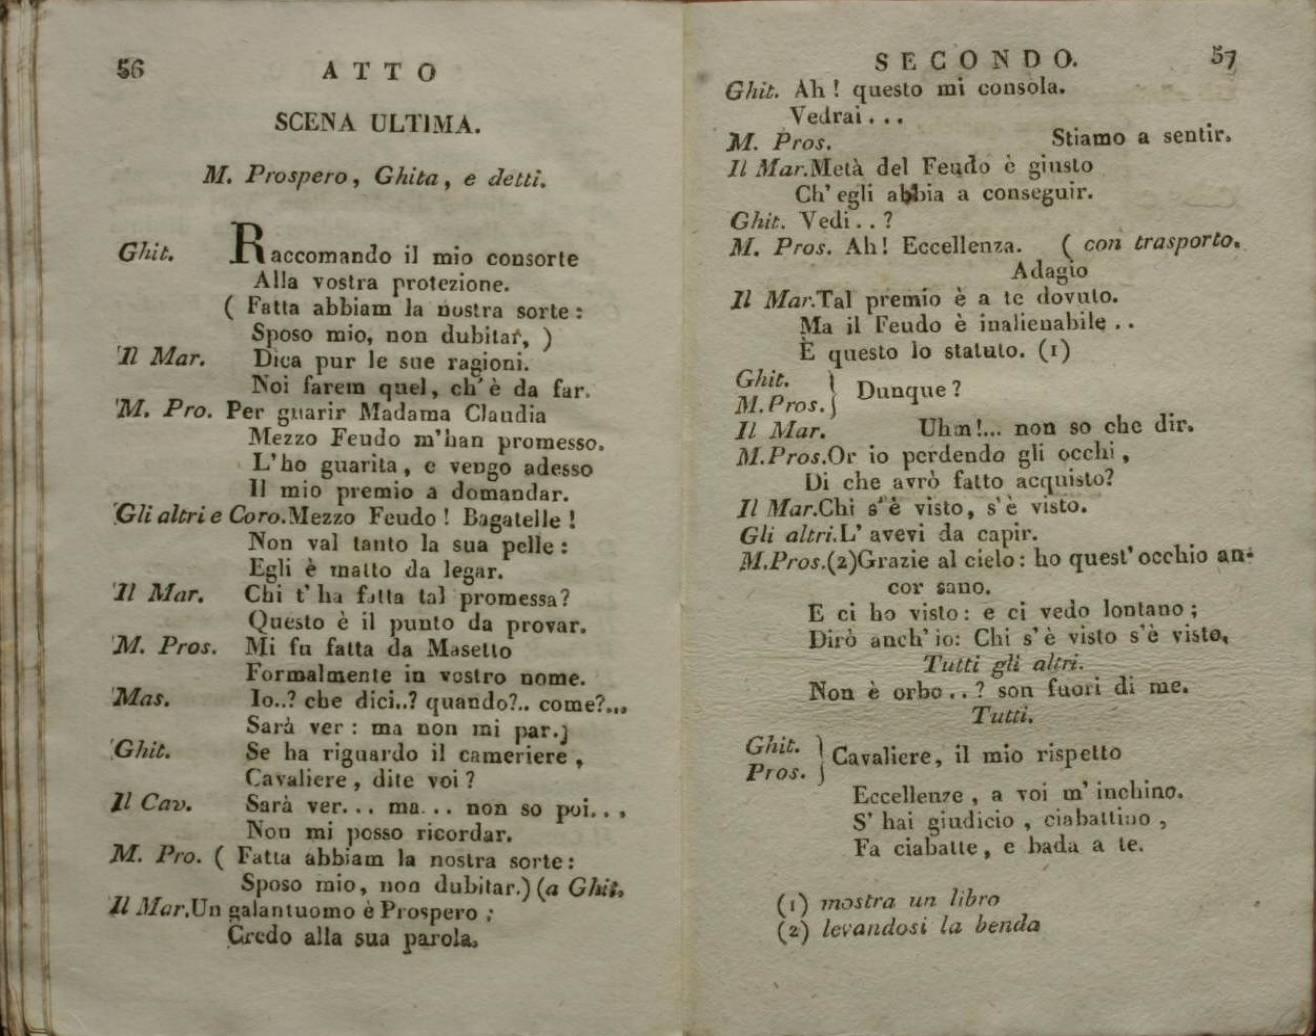 56
ATTO
SCENA ULTIMA.
M. Prospero, Ghita, e detti.
Ghit. Raccomando il mio consorte
Alla vostra protezione.
( Fatta abbiam la nostra sorte :
Sposo mio, non dubitar, )
Il Mar. Dica pur le sue ragioni.
Noi farem quel, ch' è da far.
M. Pro. Per guarir Madama Claudia
Mezzo Feudo m'han promesso.
L'ho guarita, e vengo adesso
Il mio premio a domandar.
Gli altri e Coro. Mezzo Feudo ! Bagatelle !
Non val tanto la sua pelle :
Egli è matto da legar.
Il Mar. Chi t' ha fatta tal promessa?
Questo è il punto da provar.
M. Pros. Mi fu fatta da Masetto
Formalmente in vostro nome.
Mas. Io..? che dici..? quando?.. come?...
Sarà ver : ma non mi par.
Ghit. Se ha riguardo il cameriere,
Cavaliere, dite voi ?
Il Cav. Sarà ver... ma... non so poi...
Non mi posso ricordar.
M. Pro. ( Fatta abbiam la nostra sorte :
Sposo mio, non dubitar.) (a Ghit.
Il Mar. Un galantuomo è Prospero ;
Credo alla sua parola.
SECONDO.
57
Ghit. Ah ! questo mi consola.
Vedrai...
M. Pros. Stiamo a sentir.
Il Mar. Metà del Feudo è giusto
Ch' egli abbia a conseguir.
Ghit. Vedi..?
M. Pros. Ah! Eccellenza. ( con trasporto.
Adagio
Il Mar. Tal premio è a te dovuto.
Ma il Feudo è inalienabile..
È questo lo statuto. (1)
Ghit. } Dunque ?
M. Pros. }
Il Mar. Uhm!... non so che dir.
M. Pros. Or io perdendo gli occhi,
Di che avrò fatto acquisto?
Il Mar. Chi s' è visto, s' è visto.
Gli altri. L' avevi da capir.
M. Pros. (2) Grazie al cielo : ho quest' occhio an-
cor sano.
E ci ho visto : e ci vedo lontano ;
Dirò anch' io: Chi s' è visto s'è visto.
Tutti gli altri.
Non è orbo..? son fuori di me.
Tutti.
Ghit. } Cavaliere, il mio rispetto
Pros. }
Eccellenze, a voi m' inchino.
S' hai giudicio, ciabattino,
Fa ciabatte, e bada a te.
(1) mostra un libro
(2) levandosi la benda